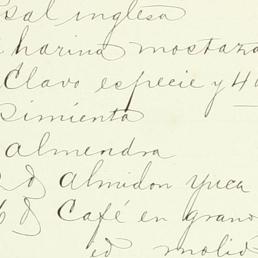 sal inglesa
harina mostaza
Clavo especie y 4
Pimienta
almendra
2 d almidon yuca
6 d Café en grano
id molid